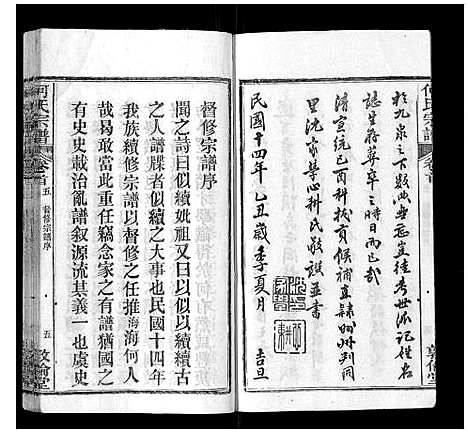 何氏宗譜
卷首
敦倫堂
於九泉之下數典
豈徒考世派記姓名
誌生葬卒之時日而已哉
清宣統己酉科拔貢候補直隸州州判同
里沈家學心耕氏敬譔並書
民國十四年乙丑歲季夏月
吉旦
督修宗譜序
聞之詩曰似續妣祖又曰以似以續續古
之人譜牒者似續之大事也民國十四年
我族續修宗譜以督修之任推海海何人
哉曷敢當此重任竊念家之有譜猶國之
有史史載治亂譜叙源流其義一也虞史
何氏宗譜
卷首
五
督修宗譜序
五
敦倫堂